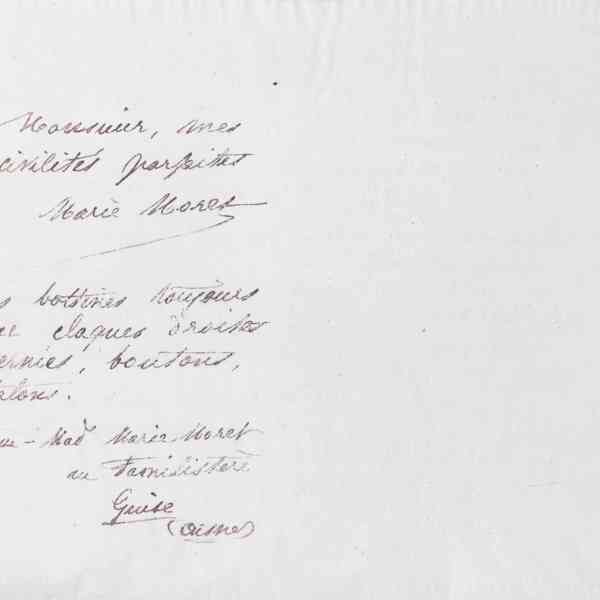 Monsieur, mes
civilités parfaites
Marie Moret
bottines toujours
claques droites
vernies, boutons,
talons.
Mad Marie Moret
au Familistère
Guise
(Aisne)